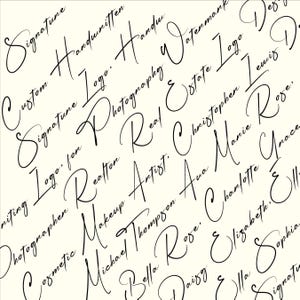 Signature
Custom Handwritten
Signature Logo. Handw
Logo. Ion Photography Watermark
Photographer Realtor Real Estate Logo
Cosmetic Makeup Artist. Christopher Lewis
Michael Thompson Ava Marie Rose.
Bella Rose. Charlotte Grace
Daisy Elizabeth.
Ella Sophia